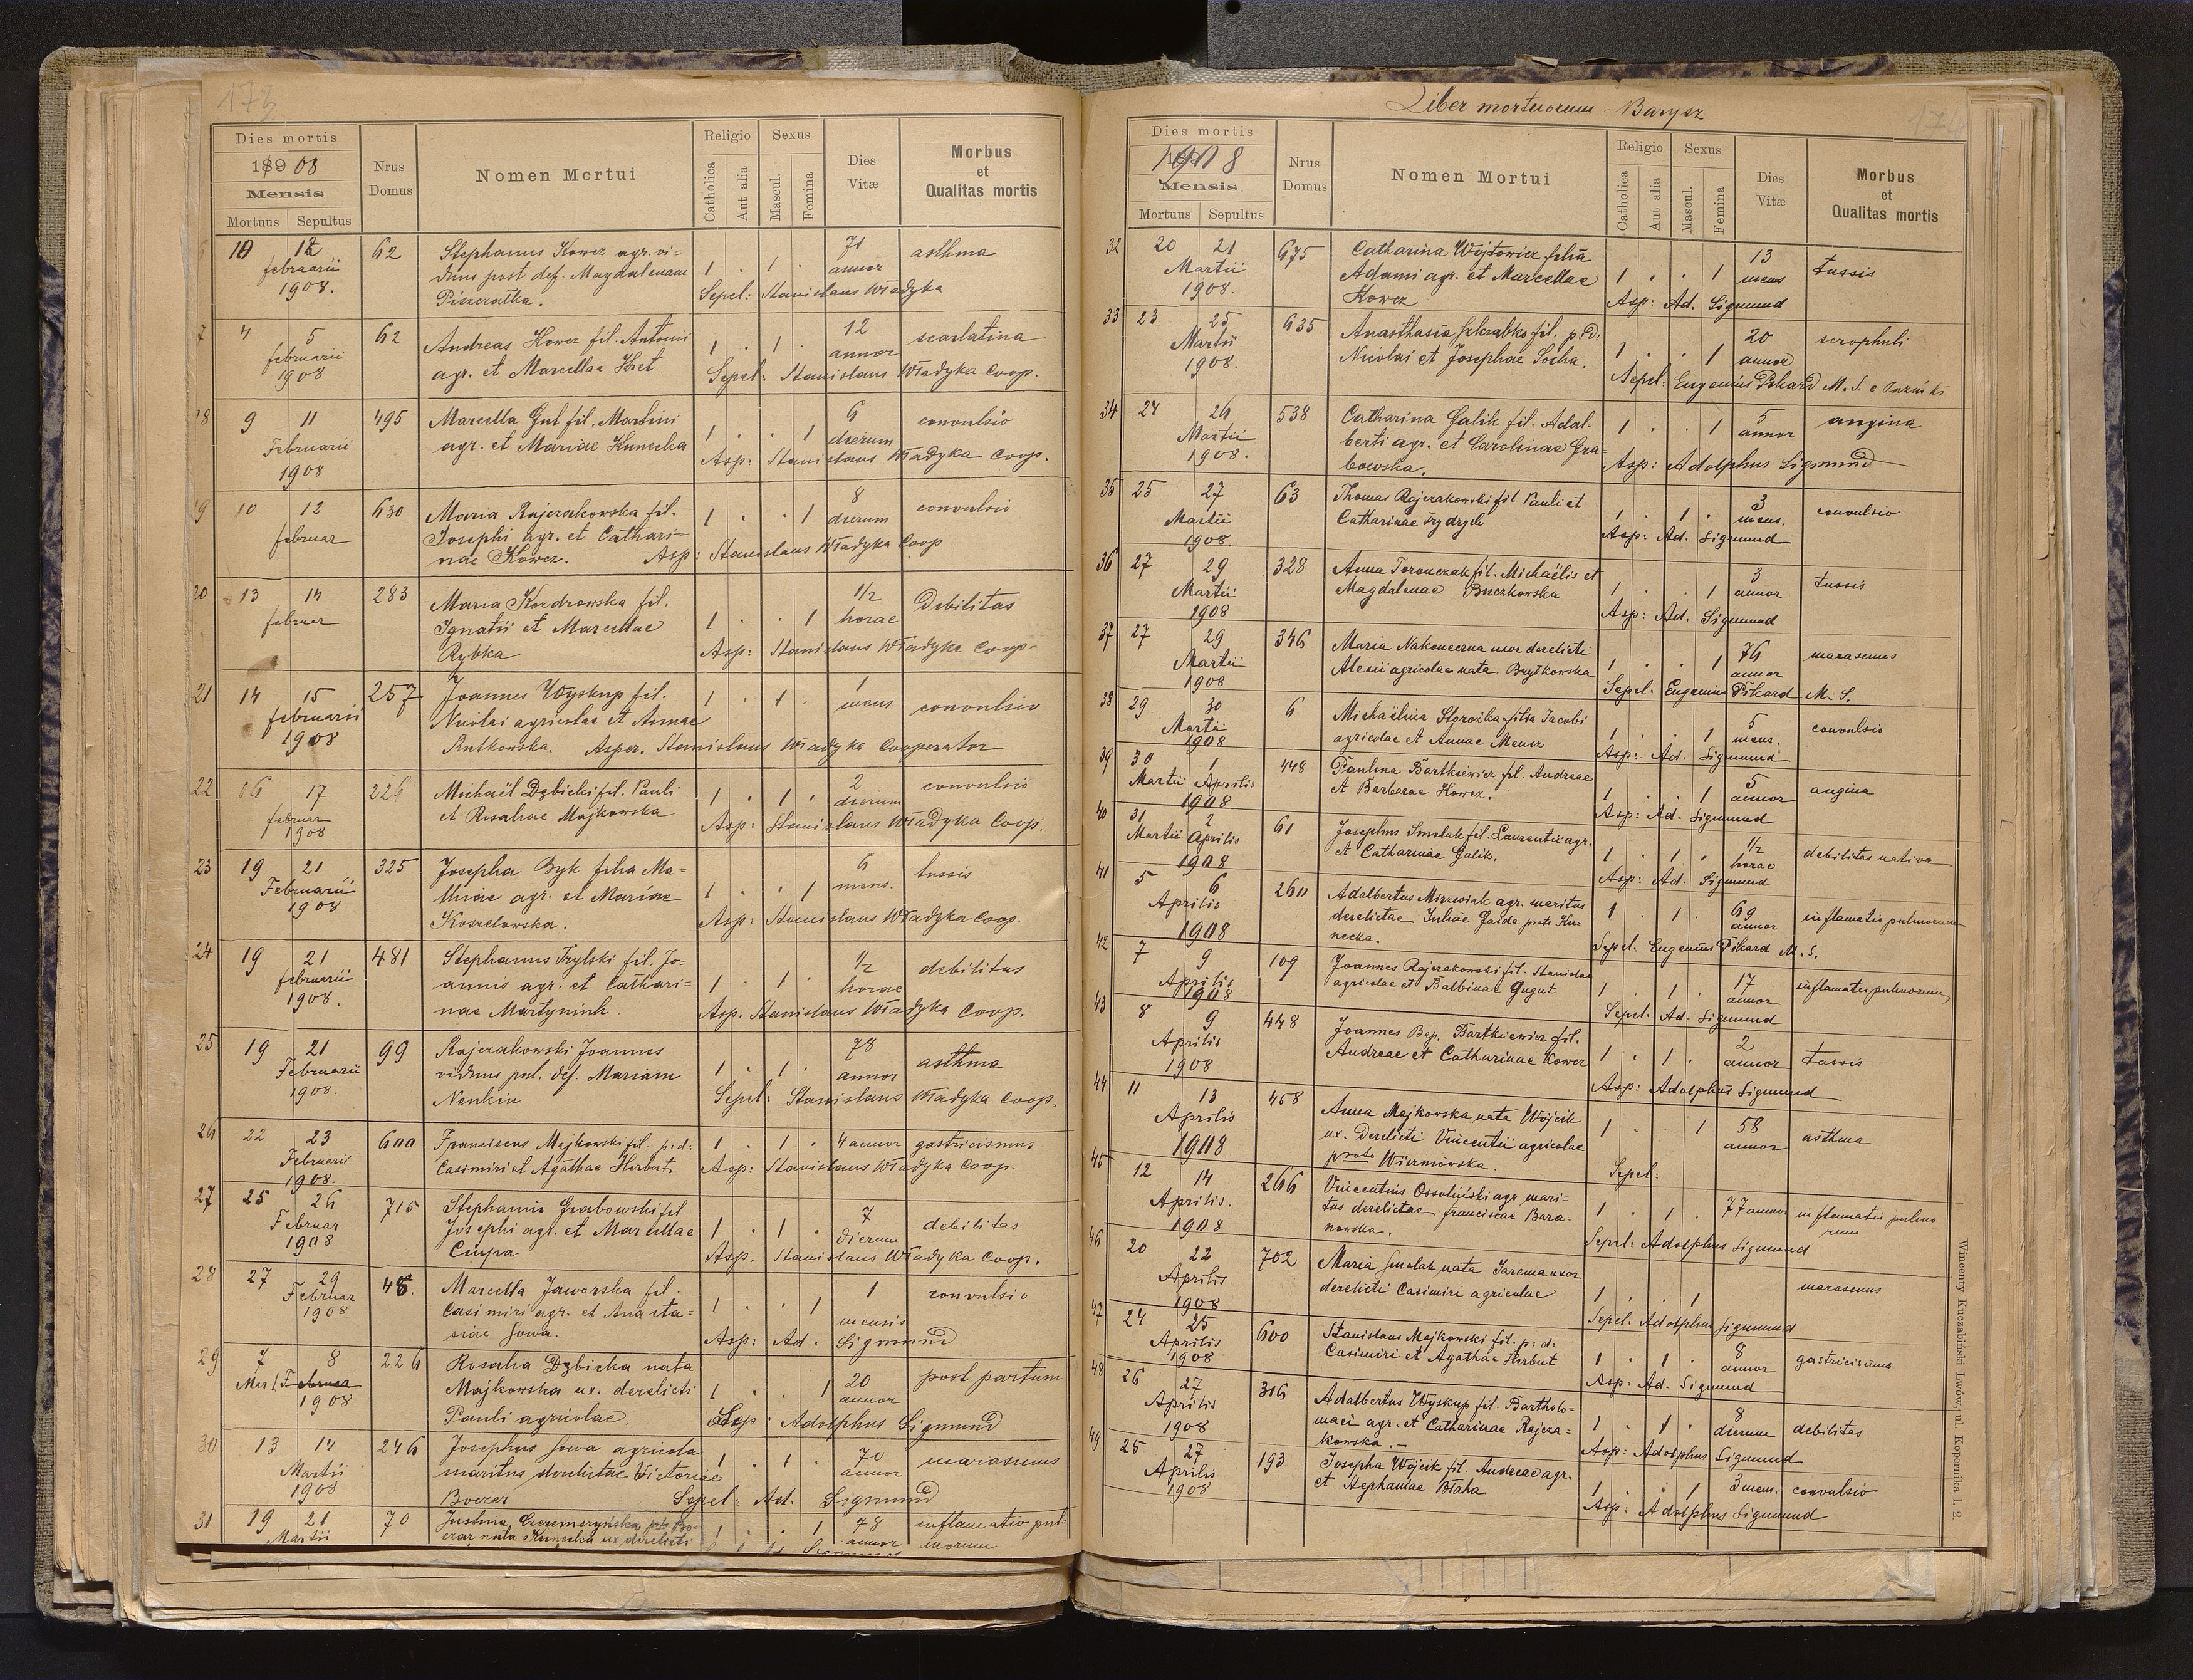 173
Dies mortis
1908
Mensis
Mortuus Sepultus
Nrus Domus
Nomen Mortui
Religio
Catholica
Aut alia
Sexus
Mascul.
Femina
Dies Vitæ
Morbus et Qualitas mortis
6 10 12 62 Stephanus Kowcz agr. vi- 71 asthma
februarii duus post def. Magdalenam 1 . 1 . annor
1908. Sepel: Stanislaus Władyka
7 4 5 62 Andreas Kowcz fil. Antonii 12 scarlatina
februarii agr. et Marcellae 1 . 1 . annor
1908 Sepel: Stanislaus Władyka Coop.
18 9 11 495 Marcella Gut fil. Martini 6 convulsio
Februarii agr. et Mariae Kunecka 1 . . 1 dierum
1908 Asp: Stanislaus Władyka Coop.
19 10 12 630 Maria Rajczakowska fil. 8 convulsio
februar Josephi agr. et Cathari- 1 . . 1 dierum
nae Kowcz. Asp: Stanislaus Władyka Coop
20 13 14 283 Maria Kozdrowska fil. 1/2 Debilitas
februar Ignatii et Marcellae 1 . . 1 horae
Rybka Asp: Stanislaus Władyka Coop.
21 14 15 257 Joannes Wyskup fil. 1 . 1 . 1 mens convulsio
februarii Nicolai agricolae et Annae
1908 Rutkowska. Asper. Stanislaus Władyka Cooperator
22 16 17 226 Michaël Dębicki fil. Pauli 1 . 1 . 2 dierum convulsio
februar et Rosaliae Majkowska
1908 Asp: Stanislaus Władyka Coop.
23 19 21 325 Josepha Byk filia Ma- 6 tussis
Februarii thiae agr. et Mariae 1 . . 1 mens.
1908 Koszelowska. Asp: Stanislaus Władyka Coop.
24 19 21 481 Stephanus Trylski fil. Jo- 1/2 debilitas
februarii annis agr. et Cathari- 1 . 1 . horae
1908. nae Martynink Asp. Stanislaus Władyka Coop.
25 19 21 99 Rajczakowski Joannes 78 asthma
Februarii viduus post. def. Mariam 1 . 1 . annor
1908. Nenkin Sepel: Stanislaus Władyka Coop.
26 22 23 600 Franciscus Majkowski fil. p: d: 1 . 1 . 4 annor gastricismus
Februarii Casimiri et Agathae Herbut
1908. Asp: Stanislaus Władyka Coop.
27 25 26 715 Stephanus Grabowski fil 7 debilitas
Februar Josephi agr. et Marcellae 1 . 1 . dierum
1908 Ciupa Asp. Stanislaus Władyka Coop.
28 27 29 Marcella Jaworska fil. 1 convulsio
Februar Casimiri agr. et Anasta- 1 . . 1 mensis
1908 siae Sowa. Asp: Ad. Sigmund
29 7 8 226 Rosalia Dębicka nata 20 post partum
Mar Februa Majkowska ux. derelicti 1 . . 1 annor
1908 Pauli agricolae. Adolphus Sigmund
30 13 14 246 Josephus Sowa agricola 70 marasmus
Martii maritus derelictae Victoriae 1 . 1 . annor
1908 Boczar Sepel: Ad. Sigmund
31 19 21 70 Justina Czeremszyńska Bo- 78 inflamatio pul-
Martii czar nata Kunecka ux derelicti 1 . . 1 annor monum
Liber mortuorum - Barysz
174
Dies mortis
1908
Mensis
Mortuus Sepultus
Nrus Domus
Nomen Mortui
Religio
Catholica
Aut alia
Sexus
Mascul.
Femina
Dies Vitæ
Morbus et Qualitas mortis
32 20 21 675 Catharina Wójtowicz filia 13 tussis
Martii Adami agr. et Marcellae 1 . . 1 mens
1908. Kowcz Asp: Ad. Sigmund
33 23 25 635 Anasthasia fil. p: d: 20 scrophuli
Martii Nicolai et Josephae Socha. 1 . . 1 annor
1908. Sepel: Eugenius Pikard M. S.
34 24 26 538 Catharina Galik fil. Adal- 5 angina
Martii berti agr. et Carolinae Gra- 1 . . 1 annor
1908. bowska. Asp: Adolphus Sigmund
35 25 27 63 Thomas Rajczakowski fil Pauli et 3 convulsio
Martii Catharinae Frydryk 1 . 1 . mens.
1908. Asp: Ad. Sigmund
36 27 29 328 Anna Toronczak fil. Michaëlis et 3 tussis
Martii Magdalenae Buczkowska 1 . . 1 annor
1908 Asp: Ad. Sigmund
37 27 29 346 Maria Nakoneczna uxor derelicti 76 marasmus
Martii Alexii agricolae nata 1 . . 1 annor
1908 Sepel. Eugenius Pikard M. S.
38 29 30 6 Michaëlina filia Jacobi 5 convulsio
Martii agricolae et Annae 1 . . 1 mens.
1908 Asp: Ad. Sigmund
39 30 1 448 Paulina Bartkiewicz fil. Andreae 5 angina
Martii Aprilis et Barbarae Kowcz. 1 . . 1 annor
1908 Asp: Ad. Sigmund
40 31 2 61 Josephus Smolak fil. Laurentii agr. 1/2 debilitas nativa
Martii Aprilis et Catharinae Galik. 1 . 1 . horae
1908 Asp: Ad. Sigmund
41 5 6 260 Adalbertus agr. maritus 69 inflamatio pulmonum
Aprilis derelictae Juliae Gaida Ku- 1 . 1 . annor
1908 necka. Sepel. Eugenius Pikard M. S.
42 7 9 109 Joannes Rajczakowski fil. Stanislai 17 inflamatio pulmonum
Aprilis agricolae et Balbinae Gugut 1 . 1 . annor
1908 Sepel: Ad. Sigmund
43 8 9 448 Joannes Bap. Bartkiewicz fil. 2 tussis
Aprilis Andreae et Catharinae Kowcz 1 . 1 . annor
1908 Asp: Adolphus Sigmund
44 11 13 458 Anna Majkowska nata Wójcik 58 asthma
Aprilis ux. derelicti Vincentii agricolae 1 . 1 annor
1908 Sepel:
45 12 14 266 Vincentius Ossoliński agr mari- 77 annor inflamatio pulmo
Aprilis. tus derelictae Franciscae Bara- 1 . 1 . num
1908 nowska. Sepel. Adolphus Sigmund
46 20 22 702 Maria Smolak nata Jarema uxor marasmus
Aprilis derelicti Casimiri agricolae 1 . . 1
1908 Sepel. Adolphus Sigmund
47 24 25 600 Stanislaus Majkowski fil. p: d: 8 gastricismus
Aprilis Casimiri et Agathae Herbut 1 . 1 . annor
1908 Asp: Ad. Sigmund
48 26 27 316 Adalbertus Wyskup fil. Bartholo- 8 debilitas
Aprilis maei agr. et Catharinae Rajcza- 1 . 1 . dierum
1908 kowska. Asp: Adolphus Sigmund
49 25 27 193 Josepha Wójcik fil. Andreae agr. 3 mens. convulsio
Aprilis et Stephaniae Błaha 1 . . 1
1908 Asp: Adolphus Sigmund
Wincenty Kuczabiński Lwów, ul. Kopernika l. 2.